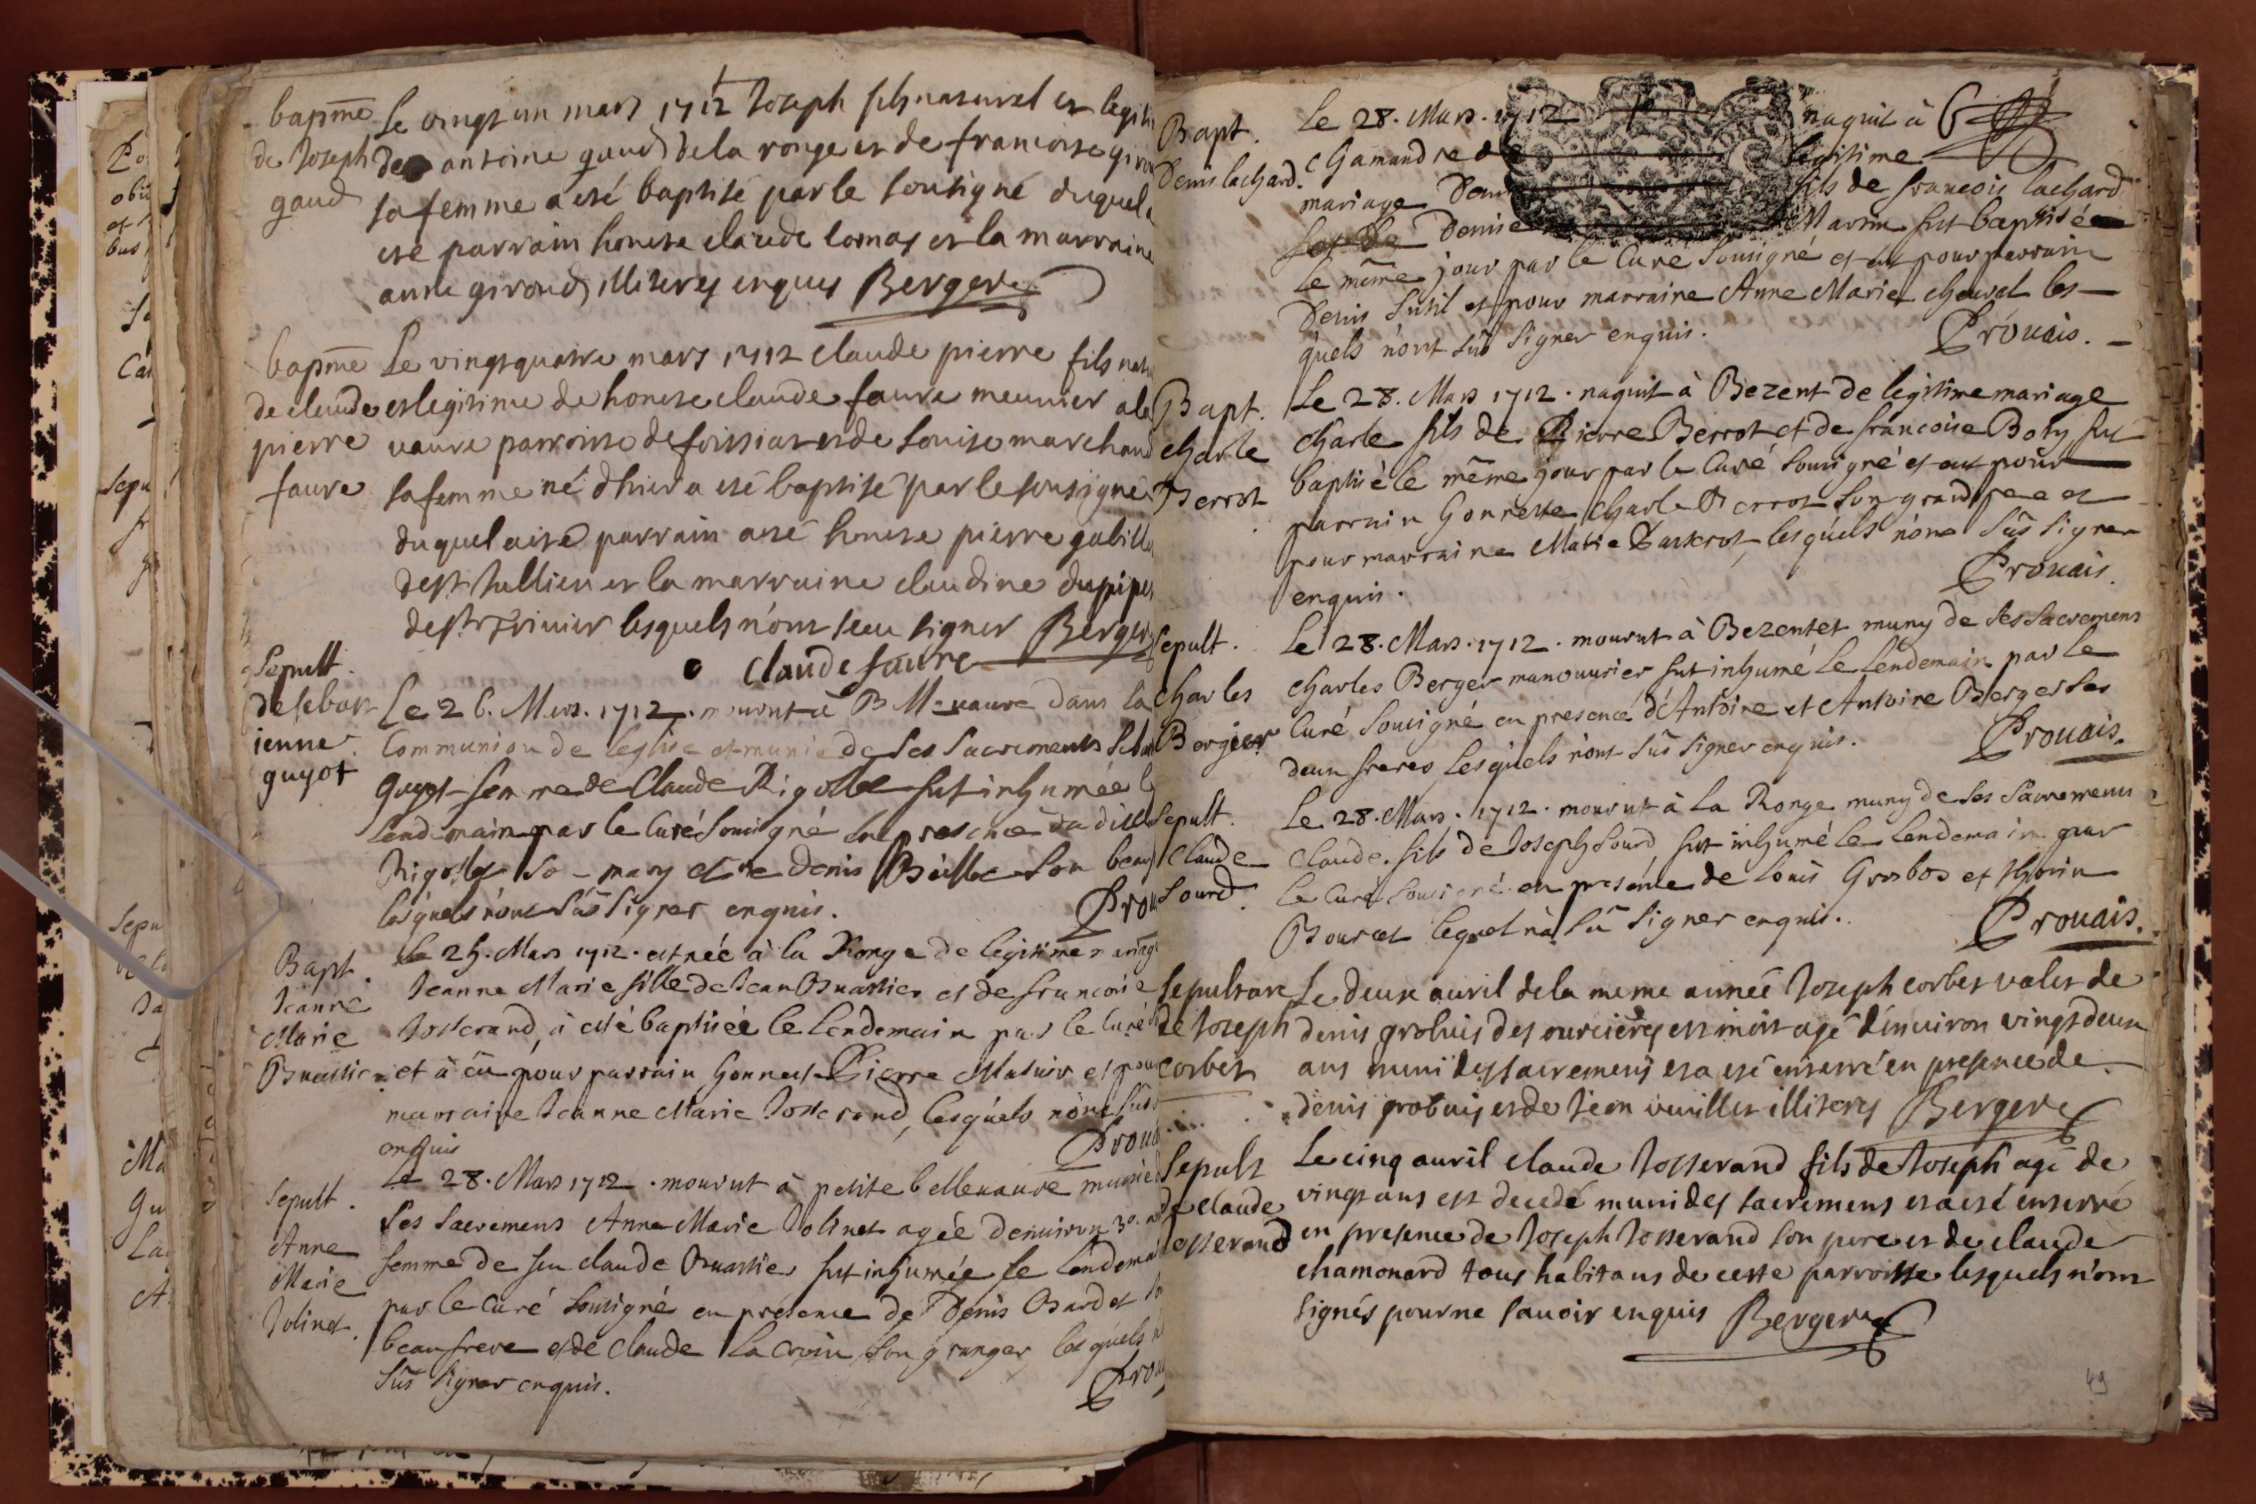 bapme
de Joseph
gaud
Le vingt un mars 1712 Joseph fils naturel et legiti
de antoine gaud de la ronge et de francoise giro
sa femme a esté baptisé par le sousigné duquel a
esté parrain honeste claude comas et la marraine
anne giroud illiterés enquis Berger
bapme
de claude
pierre
faure
Le vingt quatre mars 1712 claude pierre fils natu
et legitime de honeste claude faure meunier a la
vaure parroisse de foissiat et de louise marchand
sa femme né d'hier a esté baptisé par le sousigné
duquel a esté parrain honeste pierre gabill
de st Jullien et la marraine claudine dupipe
de st trivier lesquels n'ont sceu signer Berger
Claude faure
Sepult.
de sebast
ienne
guyot
Le 26. Mars. 1712. mourut à B M vavre dans la
Communion de l'eglise et munie de ses sacrements Seba
guyot femme de Claude Rigollet fut inhumée le
lendemain par le Curé sousigné en presence du dit
Rigollet so- mary et de Denis son beau
lesquels n'ont sú signer enquis.
Prou
Bapt.
Jeanne
Marie
Buattier
Le 25. Mars 1712. est née à la Ronge de legitime mariage
Jeanne Marie fille de Jean Buattier et de francoise
Josserand, à esté baptisée le lendemain par le Curé
et à eu pour parrain honneste Pierre Mathir et pour
marraine Jeanne Marie Josserand, lesquels n'ont sus
enquis
Prou
Sepult.
Anne
Marie
Jolinet.
Le 28. Mars 1712. mourut à petite bellevavre munie
ses sacremens Anne Marie Jolinet agée d'environ 30.
femme de feu claude Buattier fut inhumée le lendema
par le curé sousigné en présence de Denis Bardet
beau frere et de Claude Lacroix son granger lesquels
sus signer enquis.
Prou
Bapt.
Denis lachard.
Le 28. Mars. 1712 naquit à
Chamandre de legitime
mariage Denis fils de francois lachard
Denise Martin fut baptisé
Le même jour par le Curé sousigné et eu pour parrain
Denis Sutil et pour marraine Anne Marie cheval les-
quels n'ont sus signer enquis.
Prouais.
Bapt.
charle
Berrot
Le 28. Mars 1712. naquit à Bezent de legitime mariage
charle fils de Pierre Berrot et de francoise Boly fut
baptisé le même jour par le Curé sousigné et eut pour
parrain honneste Charle Berrot son grand pere et
pour marraine Marie lesquels n'ont sus signer
enquis.
Prouais.
Sepult.
Charles
Berger
Le 28. Mars. 1712. mourut à Bezentet muny de ses sacremens
charles Berger manouvrier fut inhumé le lendemain par le
Curé sousigné en presence d'Antoine et Antoine Berger ses
deux freres lesquels n'ont sus signer enquis.
Prouais.
Sepult.
Claude
Sourd.
Le 28. Mars. 1712. mourut à La Ronge muny de ses sacremens
claude fils de Joseph Sourd, fut inhumé le lendemain par
le curé sousigné en presence de Louis Grosbos et
Bourcet lequel n'a sú signer enquis.
Prouais.
Sepulture
de Joseph
corbet
Le deux auril de la meme année Joseph corbet valet de
denis grobuis des ourcières est mort agé d'enuiron vingt deux
ans muni des sacremens et a esté enterré en presence de
denis grobuis et de Jean illiterés Berger
Sepult
de claude
Josserand
Le cinq auril claude Josserand fils de Joseph agé de
vingt ans est decedé muni des sacremens et a esté enterré
en presence de Joseph Josserand son pere et de claude
chamonard tous habitans de cette parroisse lesquels n'ont
signés pour ne sauoir enquis Berger
49